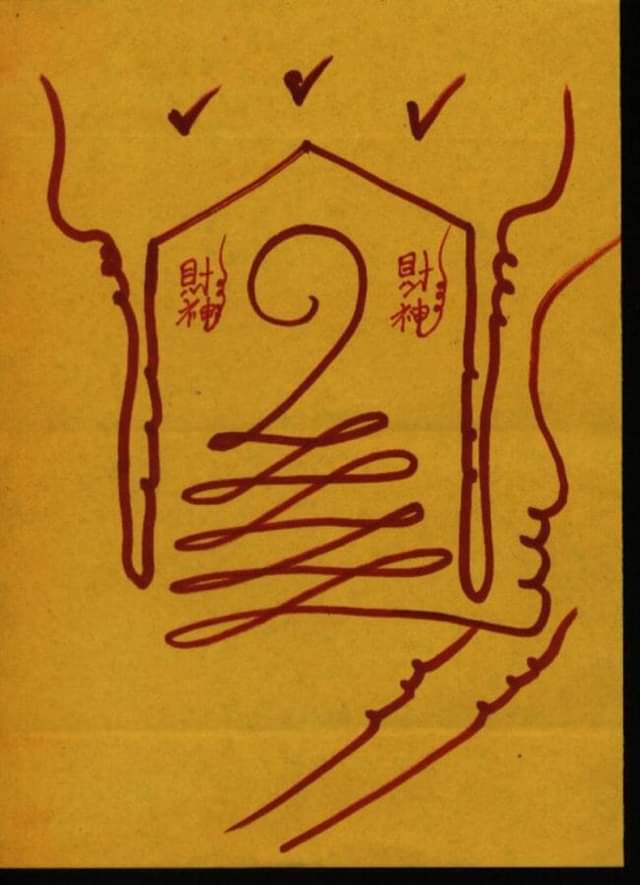 財神
財神